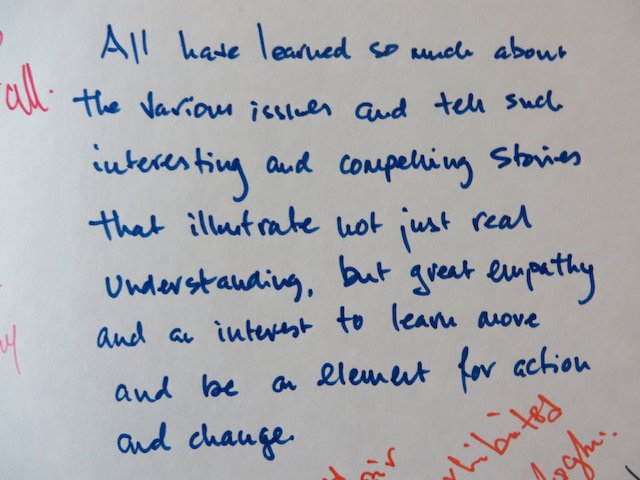 All have learned so much about
all.
the various issues and tell such
interesting and compelling stories
that illustrate not just real
understanding, but great empathy
and an interest to learn more
and be an element for action
and change.